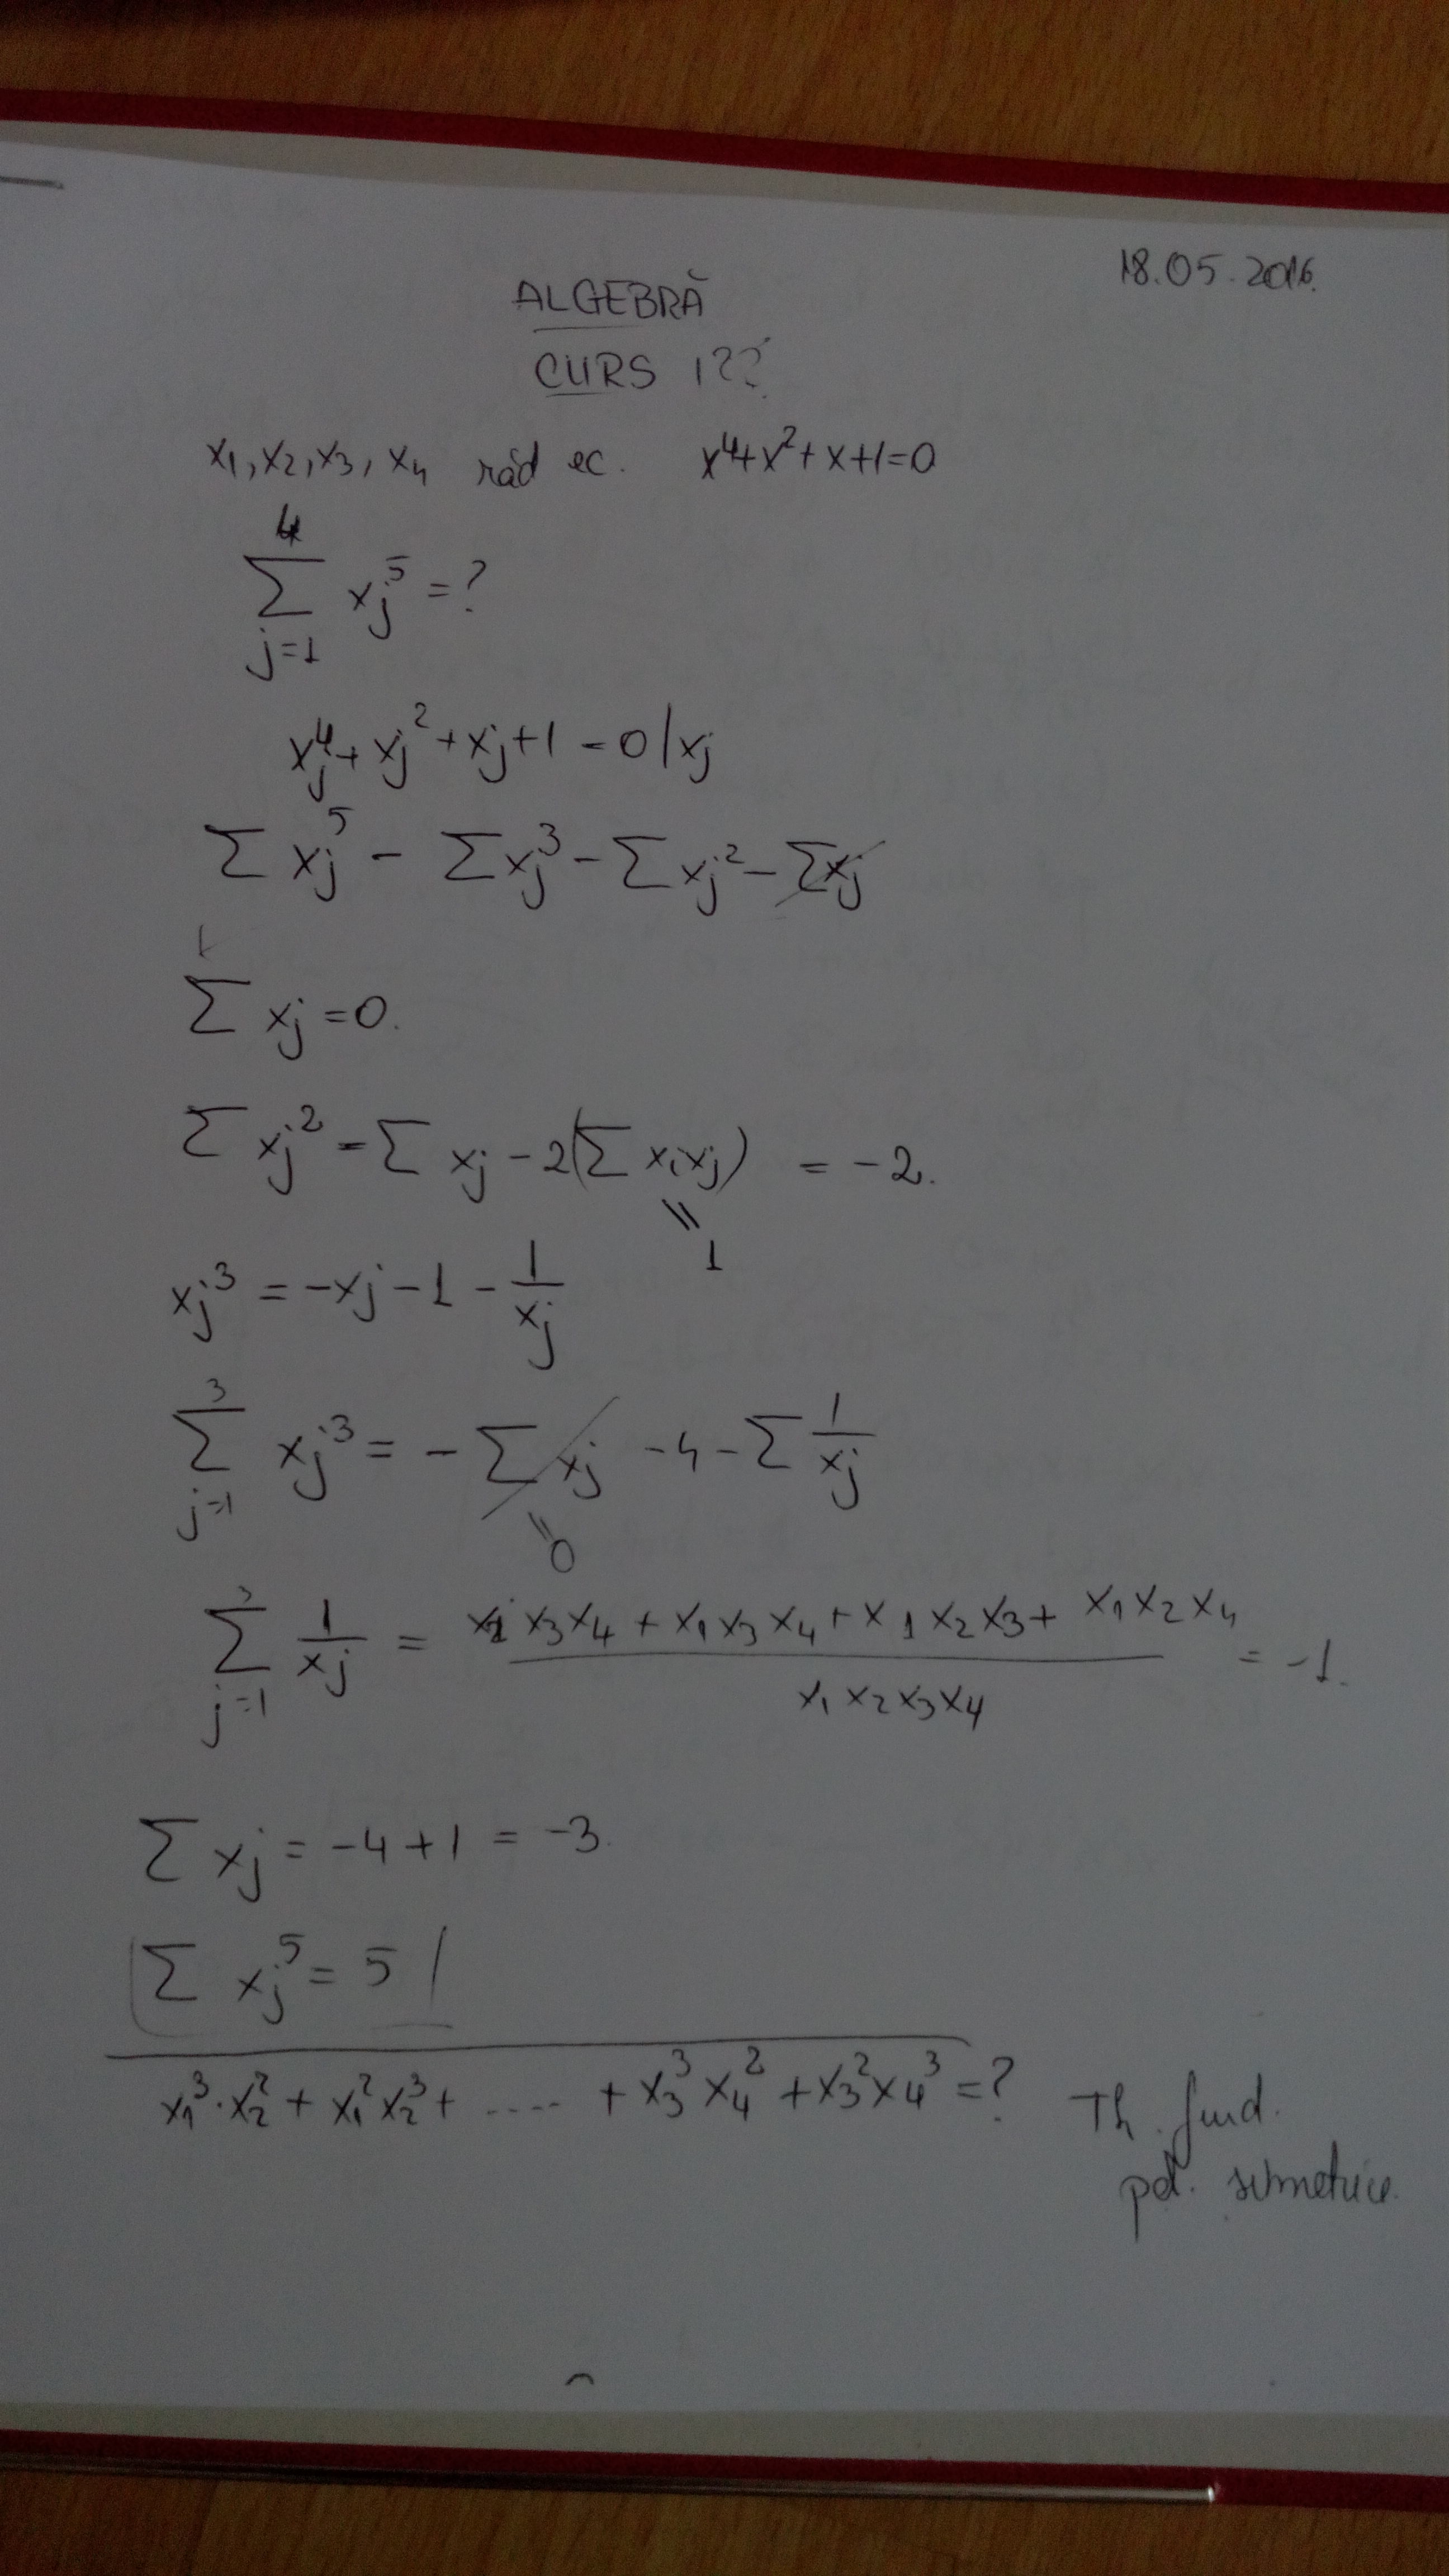 18.05.2016.
ALGEBRĂ
CURS 1??
x₁, x₂, x₃, x₄ răd ec. x⁴+x²+x+1=0
∑_{j=1}^{4} xj⁵ = ?
xj⁴ + xj² + xj + 1 = 0 | xj
∑ xj⁵ - ∑ xj³ - ∑ xj² - ∑ xj
∑ xj = 0.
∑ xj² = ∑ xj - 2(∑ xixj) = -2.
= 1
xj³ = -xj - 1 - 1/xj
∑_{j=1}^{3} xj³ = - ∑ xj - 4 - ∑ 1/xj
= 0
∑_{j=1}^{3} 1/xj = (x₂x₃x₄ + x₁x₃x₄ + x₁x₂x₃ + x₁x₂x₄)/(x₁x₂x₃x₄) = -1.
∑ xj = -4 + 1 = -3.
∑ xj⁵ = 5
x₁³·x₂² + x₁²x₂³ + ..... + x₃³x₄² + x₃²x₄³ = ? Th. fund.
pol. simetrice.